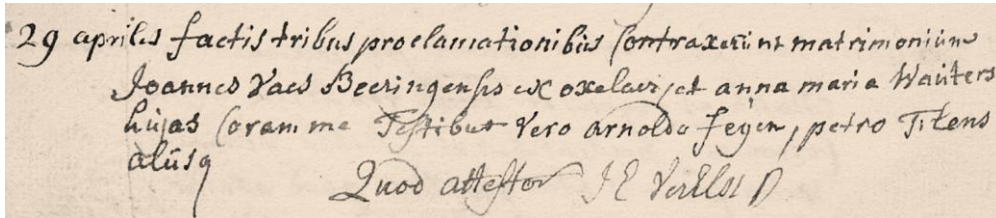 29 aprilis factis tribus proclamationibus Contraxerunt matrimonium
Joannes Vaes Beeringensis ex oxelaer, et anna maria Wauters
hujas Coram me Testibus vero arnoldo feyen, petro Titens
aliisq
Quod attestor J E VerElst